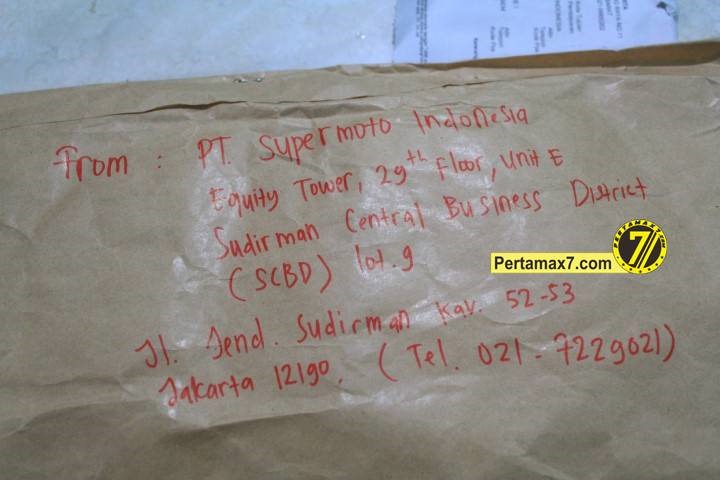 From : PT. Supermoto Indonesia
Equity Tower, 29th Floor, Unit E
Sudirman Central Business District
(SCBD) lot. 9
Jl. Jend. Sudirman Kav. 52-53
Jakarta 12190. (Tel. 021-7229021)
Pertamax7.com
PERTAMAX7.COM
7